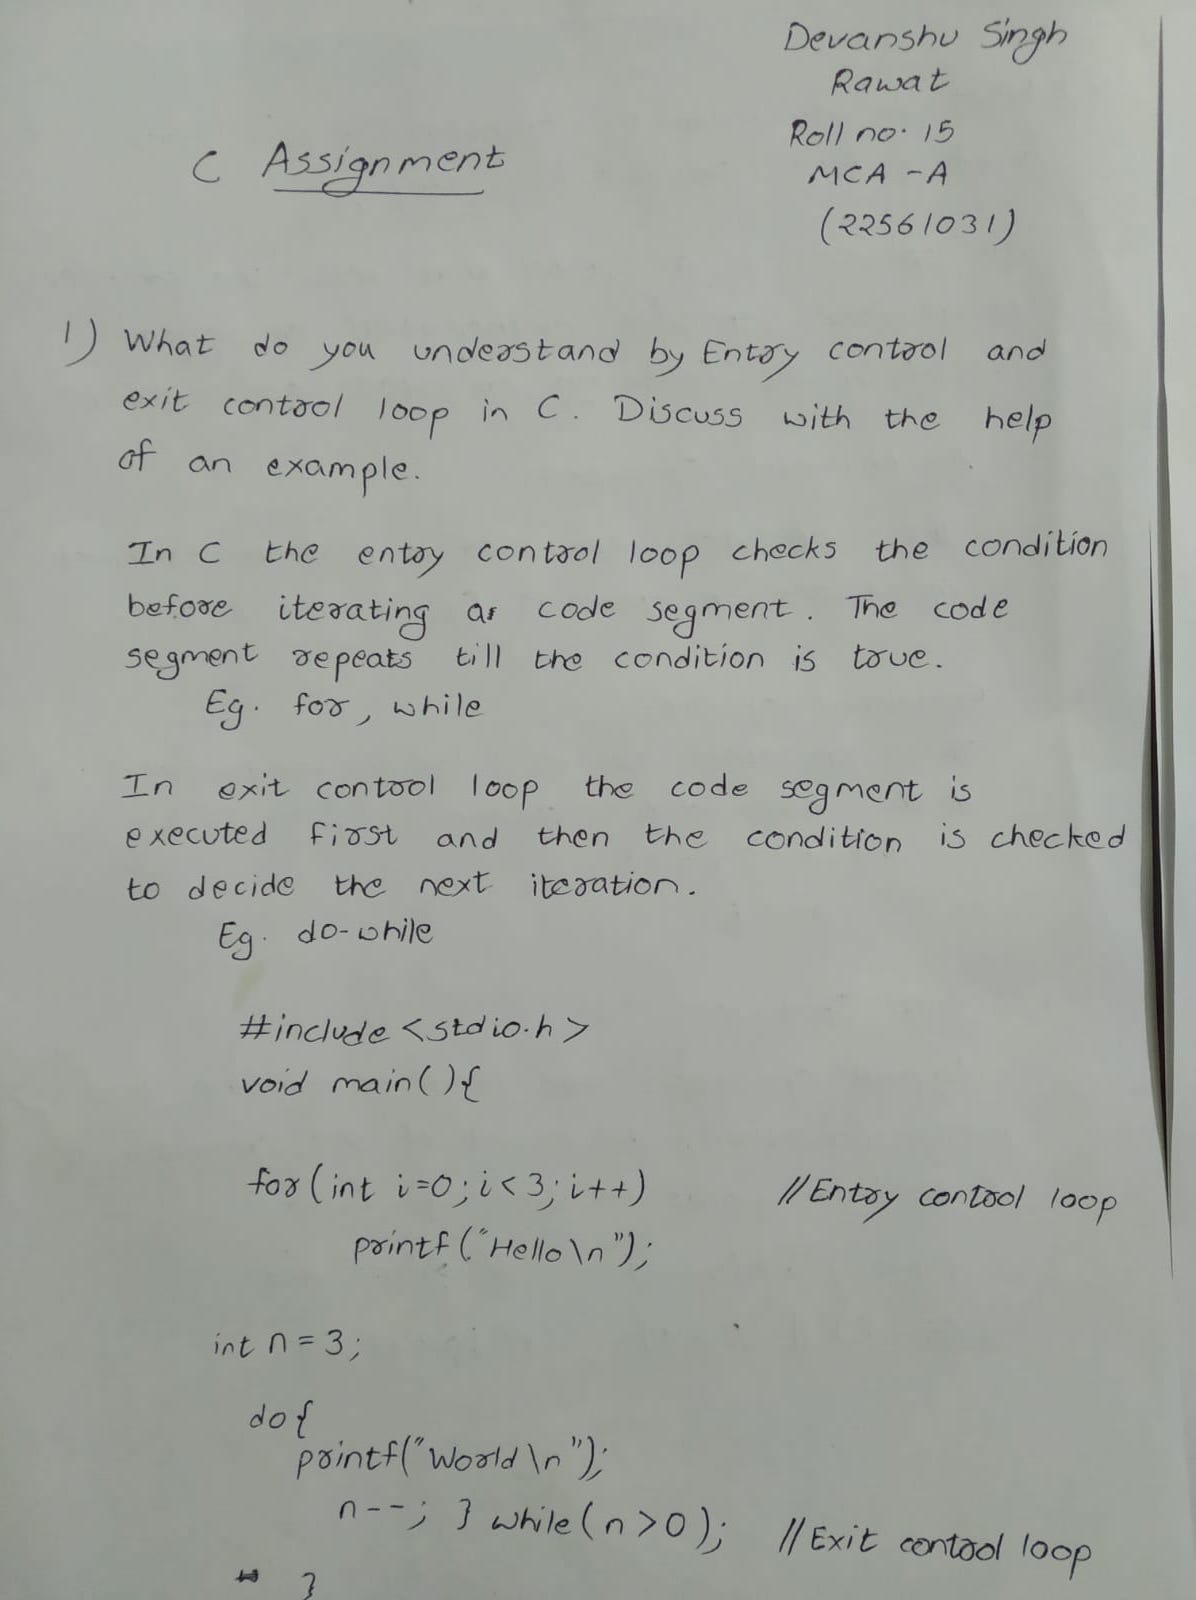 Devanshu Singh
Rawat
Roll no. 15
MCA -A
(22561031)
C Assignment
1) What do you understand by Entry control and
exit control loop in C. Discuss with the help
of an example.
In C the entry control loop checks the condition
before iterating code segment. The code
segment repeats till the condition is true.
Eg. for, while
In exit control loop the code segment is
executed first and then the condition is checked
to decide the next iteration.
Eg. do-while
#include <stdio.h>
void main(){
for(int i=0; i<3; i++) //Entry control loop
printf("Hello\n");
int n = 3;
do{
printf("World\n");
n--; } while(n>0); //Exit control loop
}